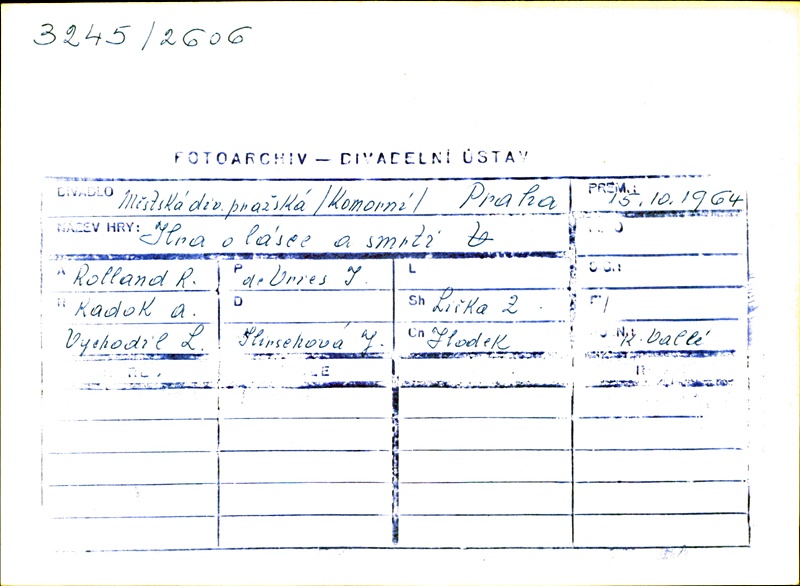 3245/2606
FOTOARCHIV — DIVADELNÍ ÚSTAV
DIVADLO Městská div. pražská /Komorní/ Praha PREM.: 15.10.1964
NÁZEV HRY: Hra o lásce a smrti
A Rolland R. P de Vries J. L
R Radok A. D Sh Liška Z.
Vychodil L. Hirschová J. Ch Hodek R. Vallé